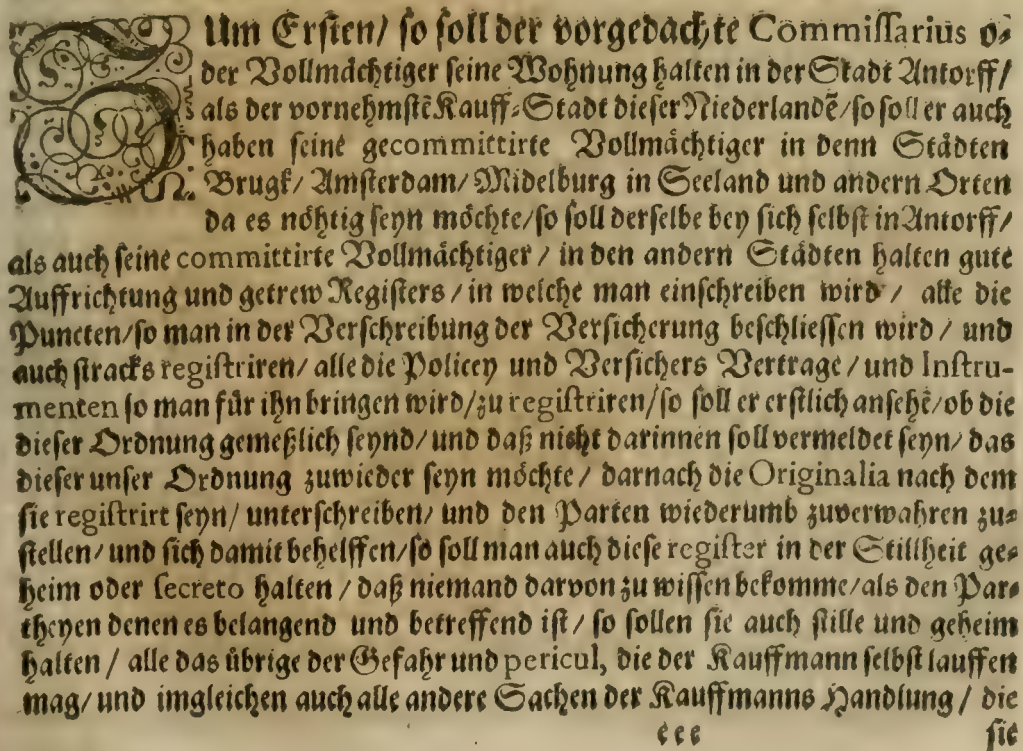 ZUm Ersten/ so soll der vorgedachte Commissarius o⸗
der Vollmåchtiger seine Wohnung halten in der Stadt Antorff/
als der vornehmstē Kauff⸗Stadt dieser Niederlandē/so soll er auch
haben seine gecommittirte Vollmåchtiger in denn Städten
Brugk/ Amsterdam/ Midelburg in Seeland und andern Orten
da es nöhtig seyn möchte/so soll derselbe bey sich selbst in Antorff/
als auch seine committirte Vollmåchtiger / in den andern Städten halten gute
Auffrichtung und getrew Registers / in welche man einschreiben wird / alle die
Puncten/so man in der Verschreibung der Versicherung beschliessen wird / und
auch stracks registriren/ alle die Policey und Versichers Vertrage / und Instru-
menten so man für ihn bringen wird/zu registriren/so soll er erstlich ansehē/ob die
dieser Ordnung gemeßlich seynd/ und daß nicht darinnen soll vermeldet seyn/ das
dieser unser Ordnung zuwieder seyn möchte / darnach die Originalia nach dem
sie registrirt seyn/ unterschreiben/ und den Parten wiederumb zuverwahren zu⸗
stellen/ und sich damit behelffen/so soll man auch diese register in der Stillheit ge⸗
heim oder secreto halten / daß niemand darvon zu wissen bekomme/als den Par⸗
theyen denen es belangend und betreffend ist / so sollen sie auch stille und geheim
halten / alle das übrige der Gefahr und pericul, die der Kauffmann selbst lauffen
mag/ und imgleichen auch alle andere Sachen der Kauffmanns Handlung / die
eee sie